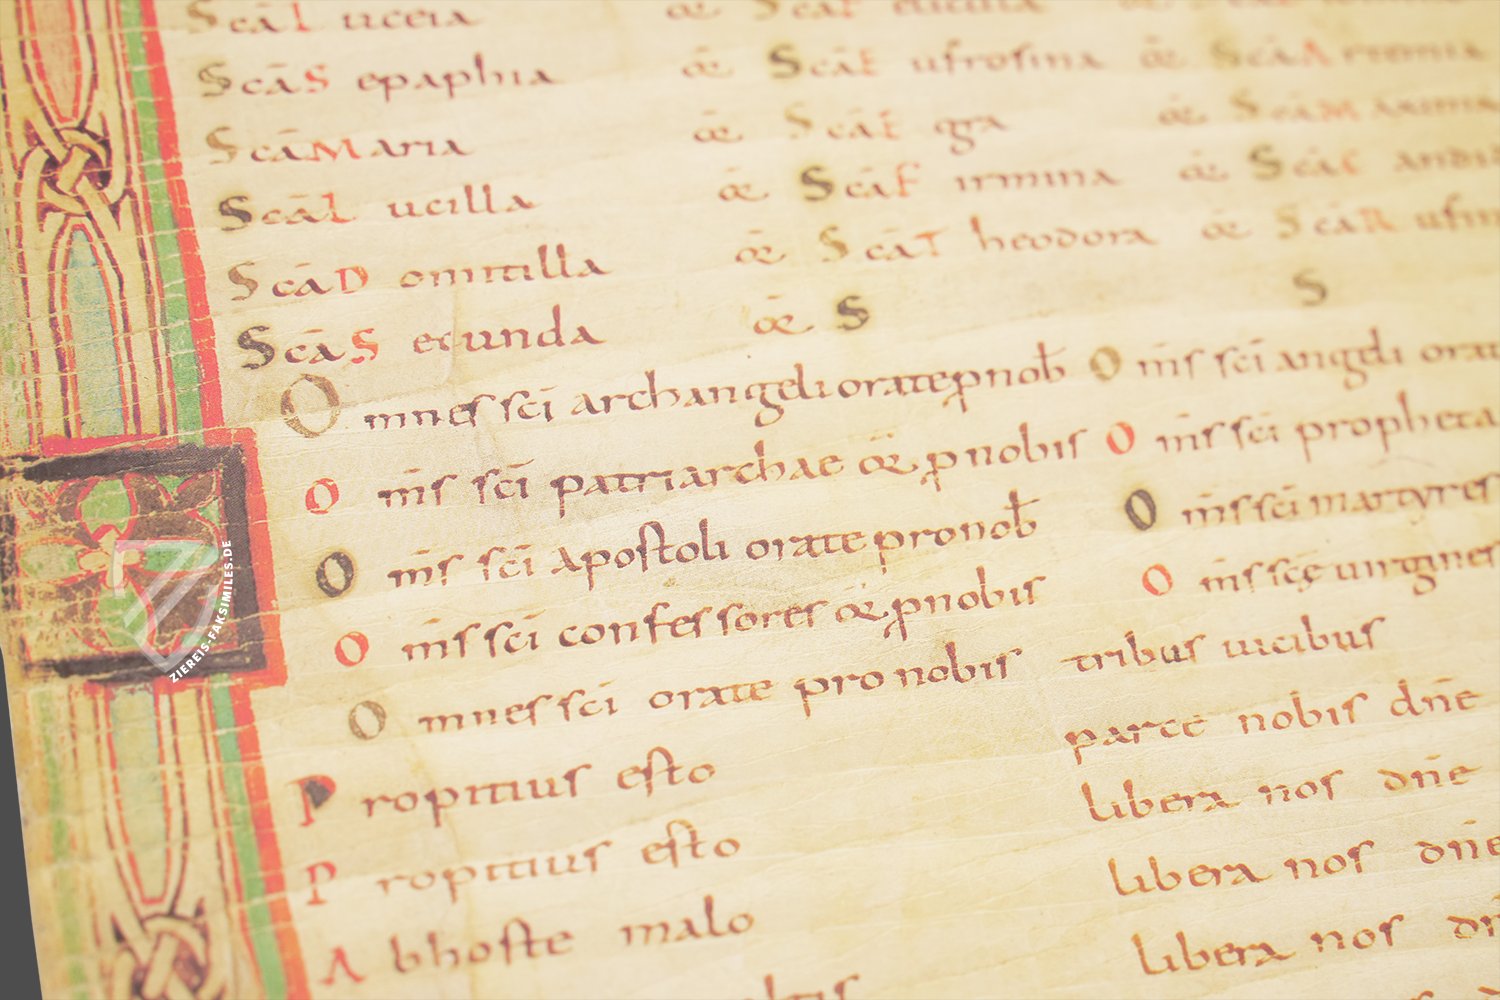 Scā L uceia
Scā S epaphia œ Scā E ufrosina œ Scā A rtemia
Scā M aria œ Scā E ga œ Scā M axima
Scā L ucilla œ Scā F irmina œ Scā C andid
Scā D omitilla œ Scā T heodora œ Scā R ufin
Scā S ecunda œ S S
Omnes sci archangeli orate p nob O mīs sci angeli orat
O mīs sci patriarchae or p nobis O mīs sci propheta
O mīs sci apostoli orate pro nob O mīs sci martyres
O mīs sci confessores or p nobis O mīs scę uirgines
Omnes sci orate pro nobis tribus uicibus
Propitius esto parce nobis dñe
Propitius esto libera nos dñe
Ab hoste malo libera nos dñe
libera nos
ZIEREIS-FAKSIMILES.DE